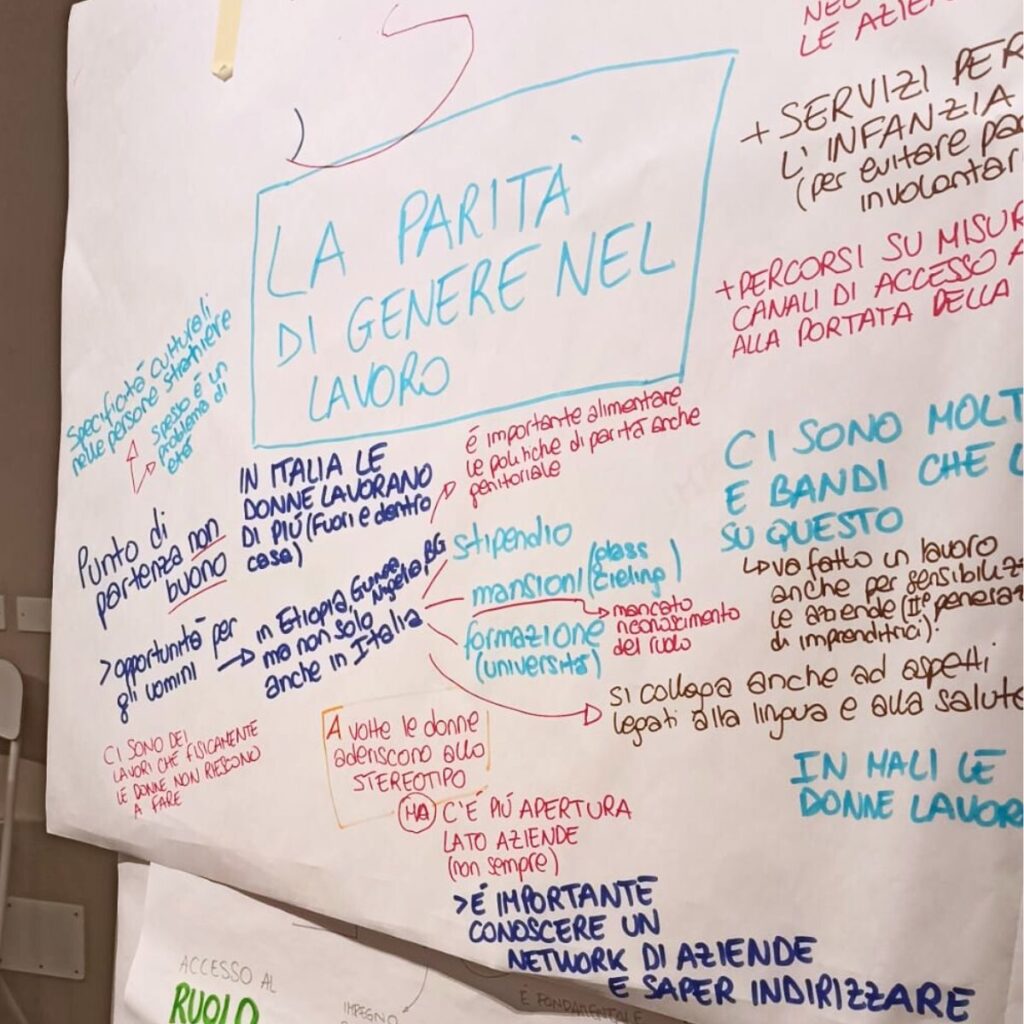 LE AZIE
+ SERVIZI PER
L'INFANZIA
(per evitare pa
involontar
+ PERCORSI SU MISUR
CANALI DI ACCESSO A
ALLA PORTATA DELLA
LA PARITÀ
DI GENERE NEL
LAVORO
Specificità culturali
nelle persone straniere
spesso è un
problema di
età
Punto di
partenza non
buono
IN ITALIA LE
DONNE LAVORANO
DI PIÙ (fuori e dentro
casa)
é importante alimentare
le politiche di parità anche
genitoriale
>opportunità per
gli uomini
in Etiopia, Nigeria, BG
ma non solo
anche in Italia
stipendio
mansioni (glass
cieling)
mancato
riconoscimento
del ruolo
formazione
(università)
CI SONO MOLT
E BANDI CHE L
SU QUESTO
va fatto un lavoro
anche per sensibiliz
le aziende (IIª generaz
di imprenditrici).
si collega anche ad aspetti
legati alla lingua e alla salute
IN MALI LE
DONNE LAVOR
CI SONO DEI
LAVORI CHE FISICAMENTE
LE DONNE NON RIESCONO
A FARE
A volte le donne
aderiscono allo
STEREOTIPO
MA C'É PIÙ APERTURA
LATO AZIENDE
(non sempre)
>É IMPORTANTE
CONOSCERE UN
NETWORK DI AZIENDE
E SAPER INDIRIZZARE
ACCESSO AL
RUOLO
IMPEGNO
É FONDAMENTALE